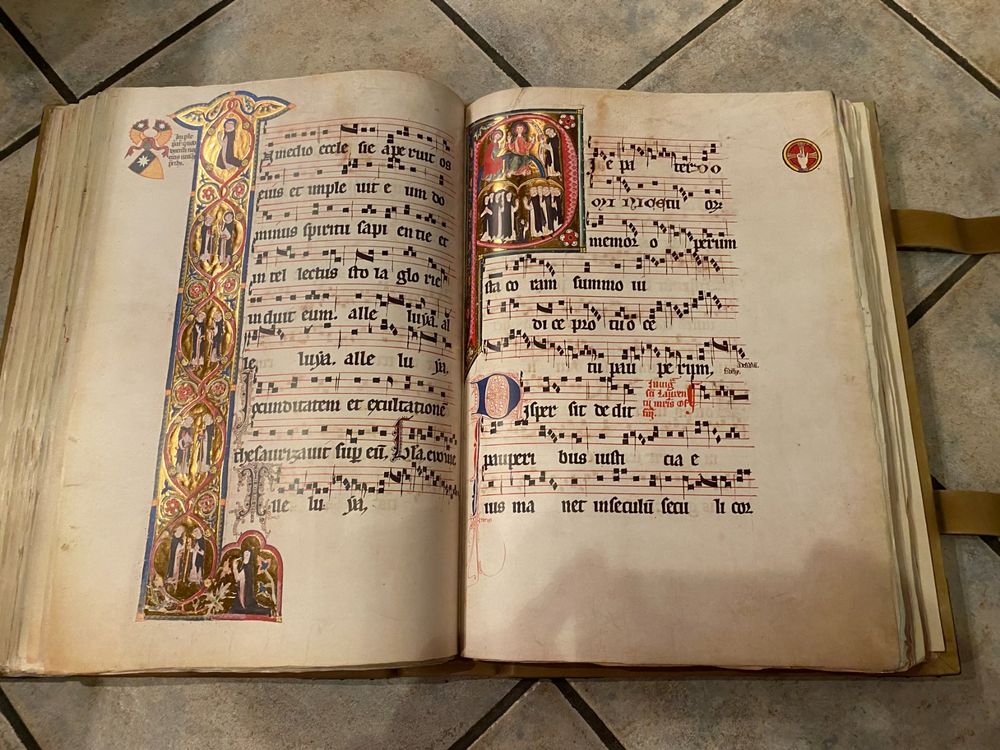 n medio eccle sie ape ruit os
eius et imple uit e um do
minus spiritu sapi entie et
in tel lectus sto la glo rie
in duit eum. alle luya. al
le luya. alle lu ya.
ocunditatem et exultationē
thesaurizauit sup eū. P sa. euouae
Alle lu ya.
D e pa ter o o
memor o perum
sta co ram summo iu
di ce pro tu o ce
tu pau pe rum,
D isper sit de dit
pauperi bus iusti cia e
ius ma net in seculū secu li cor